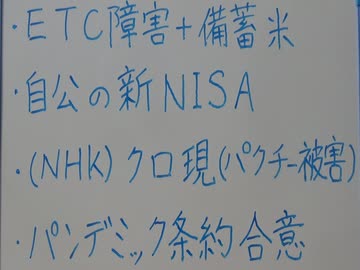 ・ETC障害+備蓄米
・自公の新NISA
・(NHK)クロ現(パクチー被害)
・パンデミック条約合意